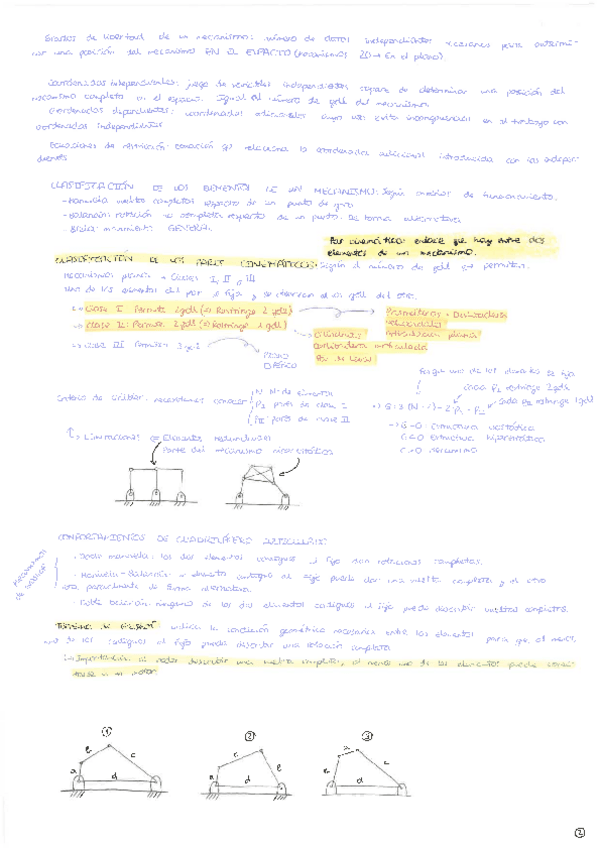 Grados de libertad de un mecanismo: número de datos independientes necesarios para determi-
nar una posición del mecanismo EN EL ESPACIO (mecanismos 2D → En el plano)
Coordenadas independientes: juego de variables independientes capaz de determinar una posición del
mecanismo completo en el espacio. Igual al número de gdl del mecanismo.
Coordenadas dependientes: coordenadas adicionales en el trabajo con
coordenadas independientes
Ecuaciones de restricción: ecuación que relaciona la coordenada adicional introducida con las indepen-
dientes
CLASIFICACIÓN DE LOS ELEMENTOS DE UN MECANISMO: Según cambios de funcionamiento.
- Manivela: vueltas completas respecto de un punto de giro
- Balancín: rotación no completa respecto de un punto. De forma alternativa
- Biela: movimiento GENERAL
Par cinemático: enlace que hay entre dos
elementos de un mecanismo.
CLASIFICACIÓN DE LOS PARES CINEMÁTICOS: Según el número de gdl que permiten.
Mecanismos planos → Clases I, II o III
Uno de los elementos del par se fija y se observan los gdl del otro.
→ Clase I: Permite 1 gdl (⇒ Restringe 2 gdl)
→ Clase II: Permite 2 gdl (⇒ Restringe 1 gdl)
→ Clase III Permiten 3 gdl
Prismáticos → Deslizadera
Articulación plana
Cilíndrico
articulada
Par de leva
PLANO
ESFÉRICO
Porque uno de los elementos se fija
cada PI restringe 2 gdl
cada PII restringe 1 gdl
Criterio de Grübler: necesitamos conocer
N: Nº de elementos
PI: pares de clase I
PII: pares de clase II
⇒ G = 3(N-1) - 2PI - PII
→ G=0 Estructura isostática
G<0 Estructura hiperestática
G>0 Mecanismo
↳ Limitaciones
Elementos redundantes
Parte del mecanismo hiperestático
COMPORTAMIENTOS DE CUADRILÁTERO ARTICULADO:
Mecanismos
de Grashof
- Doble manivela: los dos elementos contiguos al fijo dan rotaciones completas.
- Manivela-Balancín: un elemento contiguo al fijo puede dar una vuelta completa y el otro
rota parcialmente de forma alternativa
- Doble balancín: ninguno de los dos elementos contiguos al fijo puede describir vueltas completas.
Teorema de Grashof: indica la condición geométrica necesaria entre los elementos para que, al menos,
uno de los contiguos al fijo pueda describir una rotación completa
Importancia: si puede describir una vuelta completa, al menos uno de los elementos puede conec-
tarse a un motor
① ② ③
a b c d
a c b d
b a c d
②